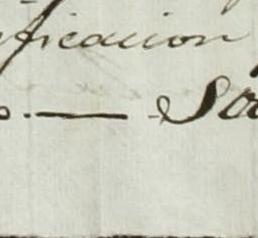 ficacion
o. — Sa